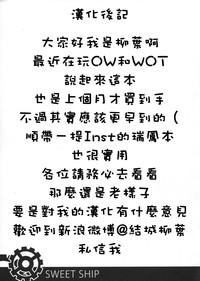 漢化後記
大家好我是柳葉啊
最近在玩OW和WOT
說起來這本
也是上個月才買到手
不過其實應該更早到的（
順帶一提Inst的瑞鳳本
也很實用
各位請務必去看看
那麼還是老樣子
要是對我的漢化有什麼意見
歡迎到新浪微博@結城柳葉
私信我
SWEET SHIP